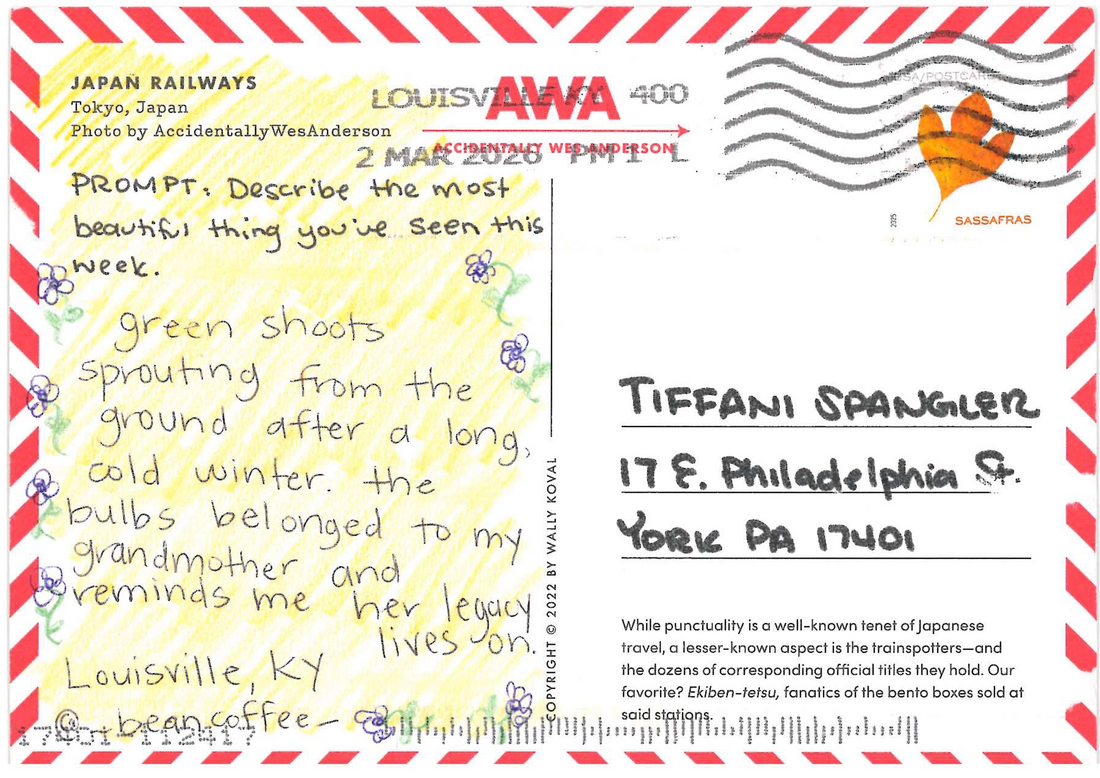 JAPAN RAILWAYS
Tokyo, Japan
Photo by AccidentallyWesAnderson
AWA
ACCIDENTALLY WES ANDERSON
LOUISVILLE KY 400
2 MAR 2026 PM 1 L
USA/POSTCARD
2025
SASSAFRAS
PROMPT: Describe the most
beautiful thing you've seen this
week.
green shoots
sprouting from the
ground after a long,
cold winter. the
bulbs belonged to my
grandmother and
reminds me her legacy
lives on.
Louisville, KY
@_beancoffee_
COPYRIGHT © 2022 BY WALLY KOVAL
TIFFANI SPANGLER
17 E. Philadelphia St.
YORK PA 17401
While punctuality is a well-known tenet of Japanese
travel, a lesser-known aspect is the trainspotters—and
the dozens of corresponding official titles they hold. Our
favorite? Ekiben-tetsu, fanatics of the bento boxes sold at
said stations.